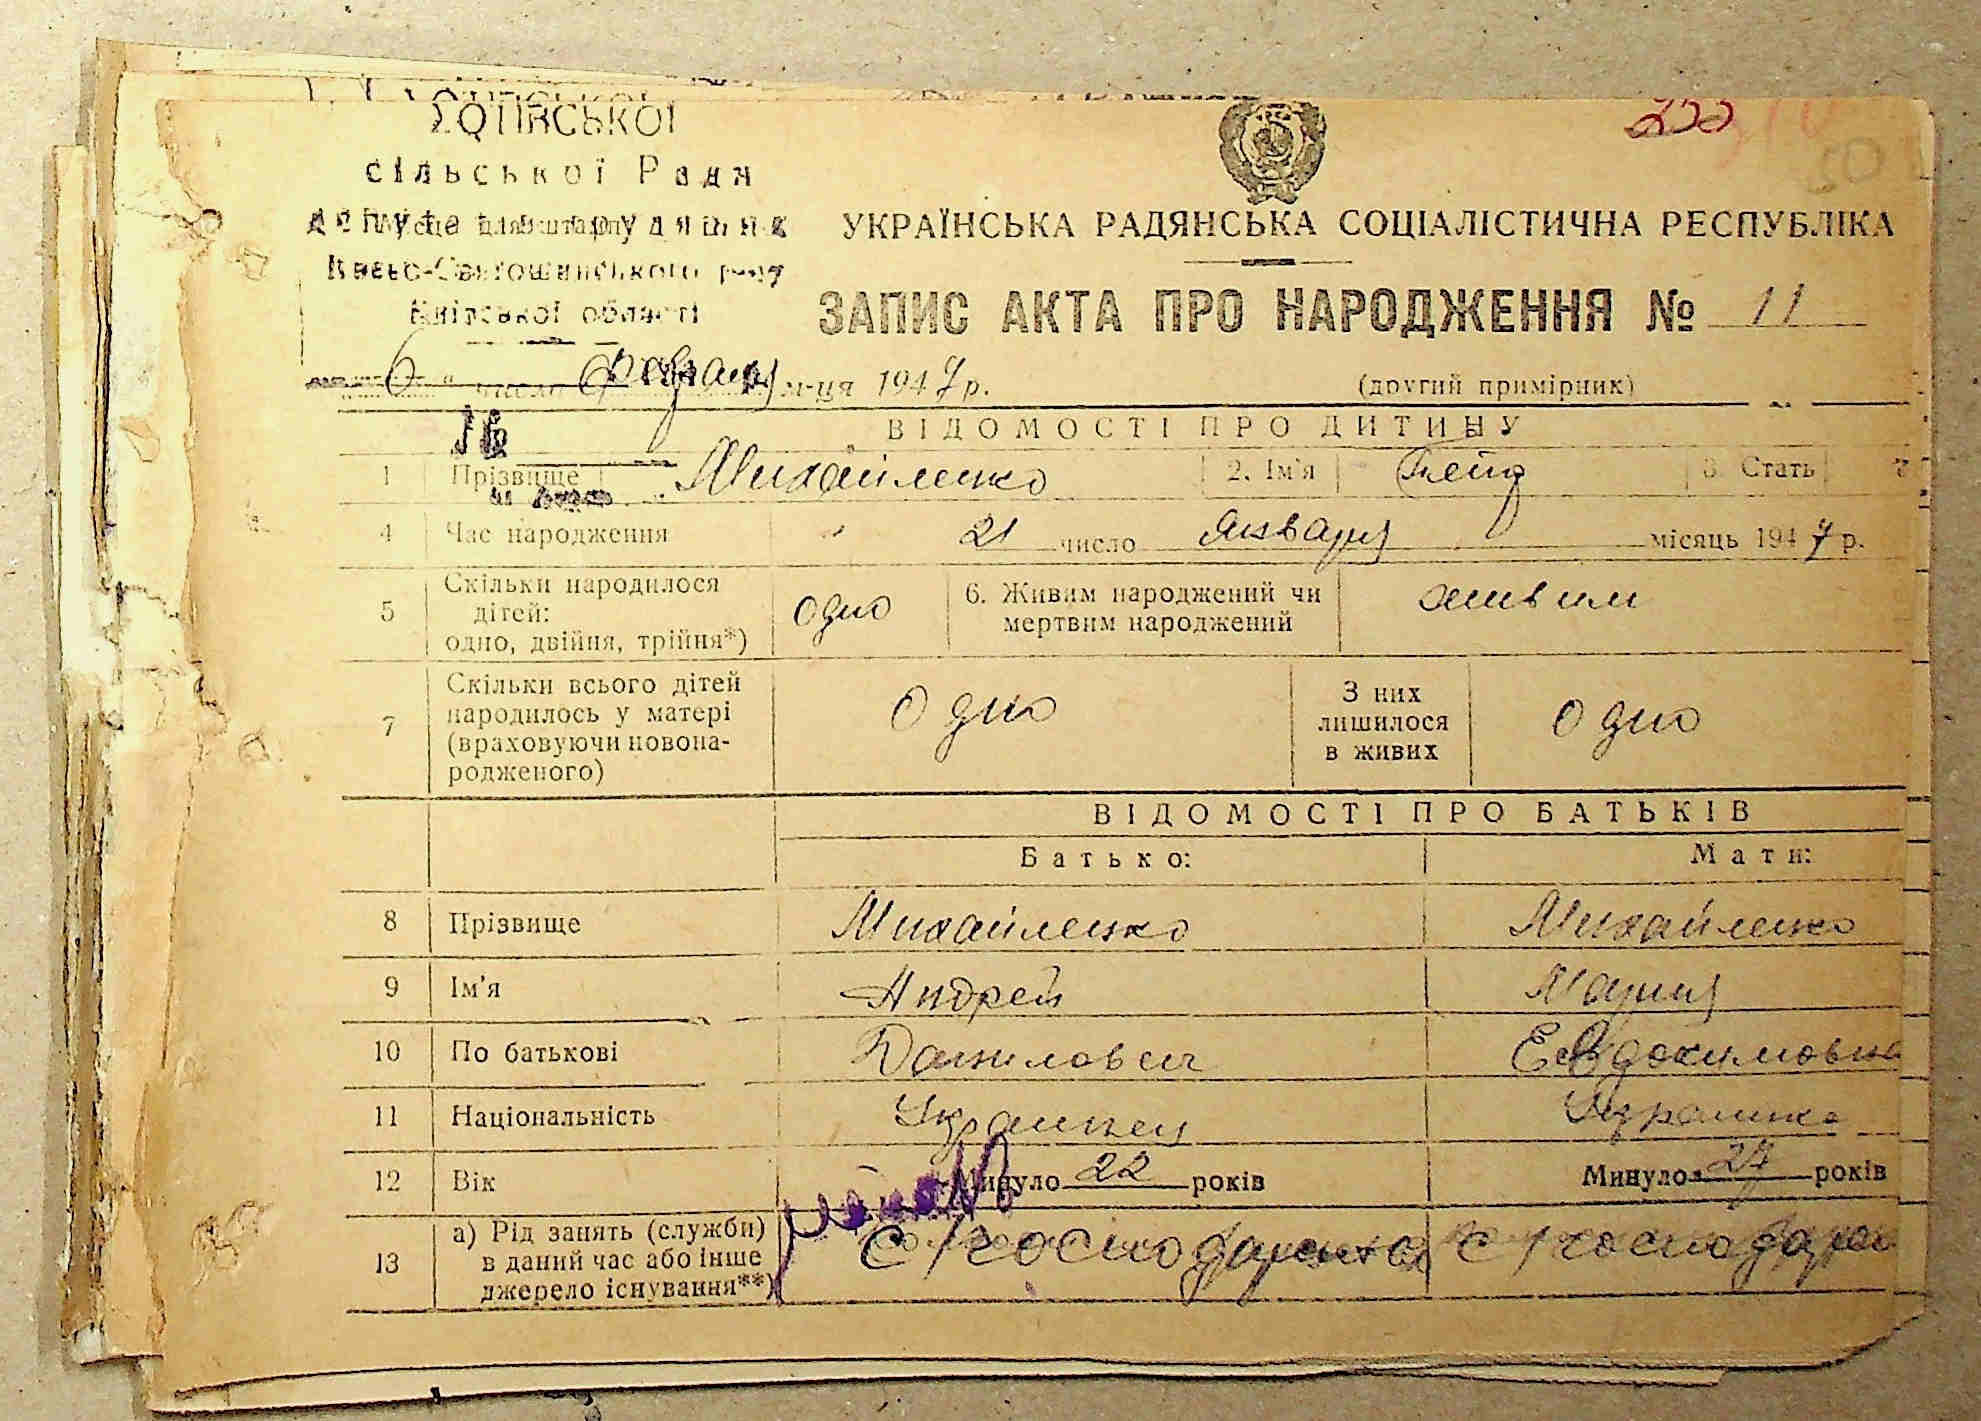 сільської Ради
Києво-Святошинського р-ну
Київської області
УКРАЇНСЬКА РАДЯНСЬКА СОЦІАЛІСТИЧНА РЕСПУБЛІКА
ЗАПИС АКТА ПРО НАРОДЖЕННЯ № 11
6 " число февраля м-ця 1947 р. (другий примірник)
ВІДОМОСТІ ПРО ДИТИНУ
1 Прізвище Михайленко 2. Ім'я 3. Стать
4 Час народження 21 число Января місяць 1947 р.
5 Скільки народилося дітей: одно, двійня, трійня*) одно 6. Живим народжений чи мертвим народжений живим
7 Скільки всього дітей народилось у матері (враховуючи новонародженого) одно З них лишилося в живих одно
ВІДОМОСТІ ПРО БАТЬКІВ
Батько: Мати:
8 Прізвище Михайленко Михайленко
9 Ім'я Андрей Мария
10 По батькові Данилович Евдокимовна
11 Національність Украинец Украинка
12 Вік Минуло 22 років Минуло 27 років
13 а) Рід занять (служби) в даний час або інше джерело існування**)